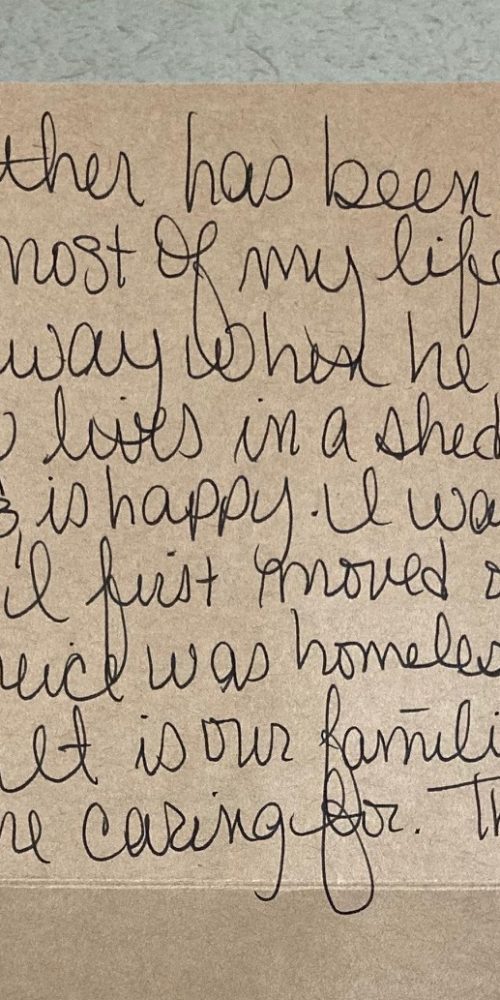 ther has been
most of my life
way when he
lives in a shed
is happy. I wa
I first moved o
was homeles
It is our famili
re caring for. Th